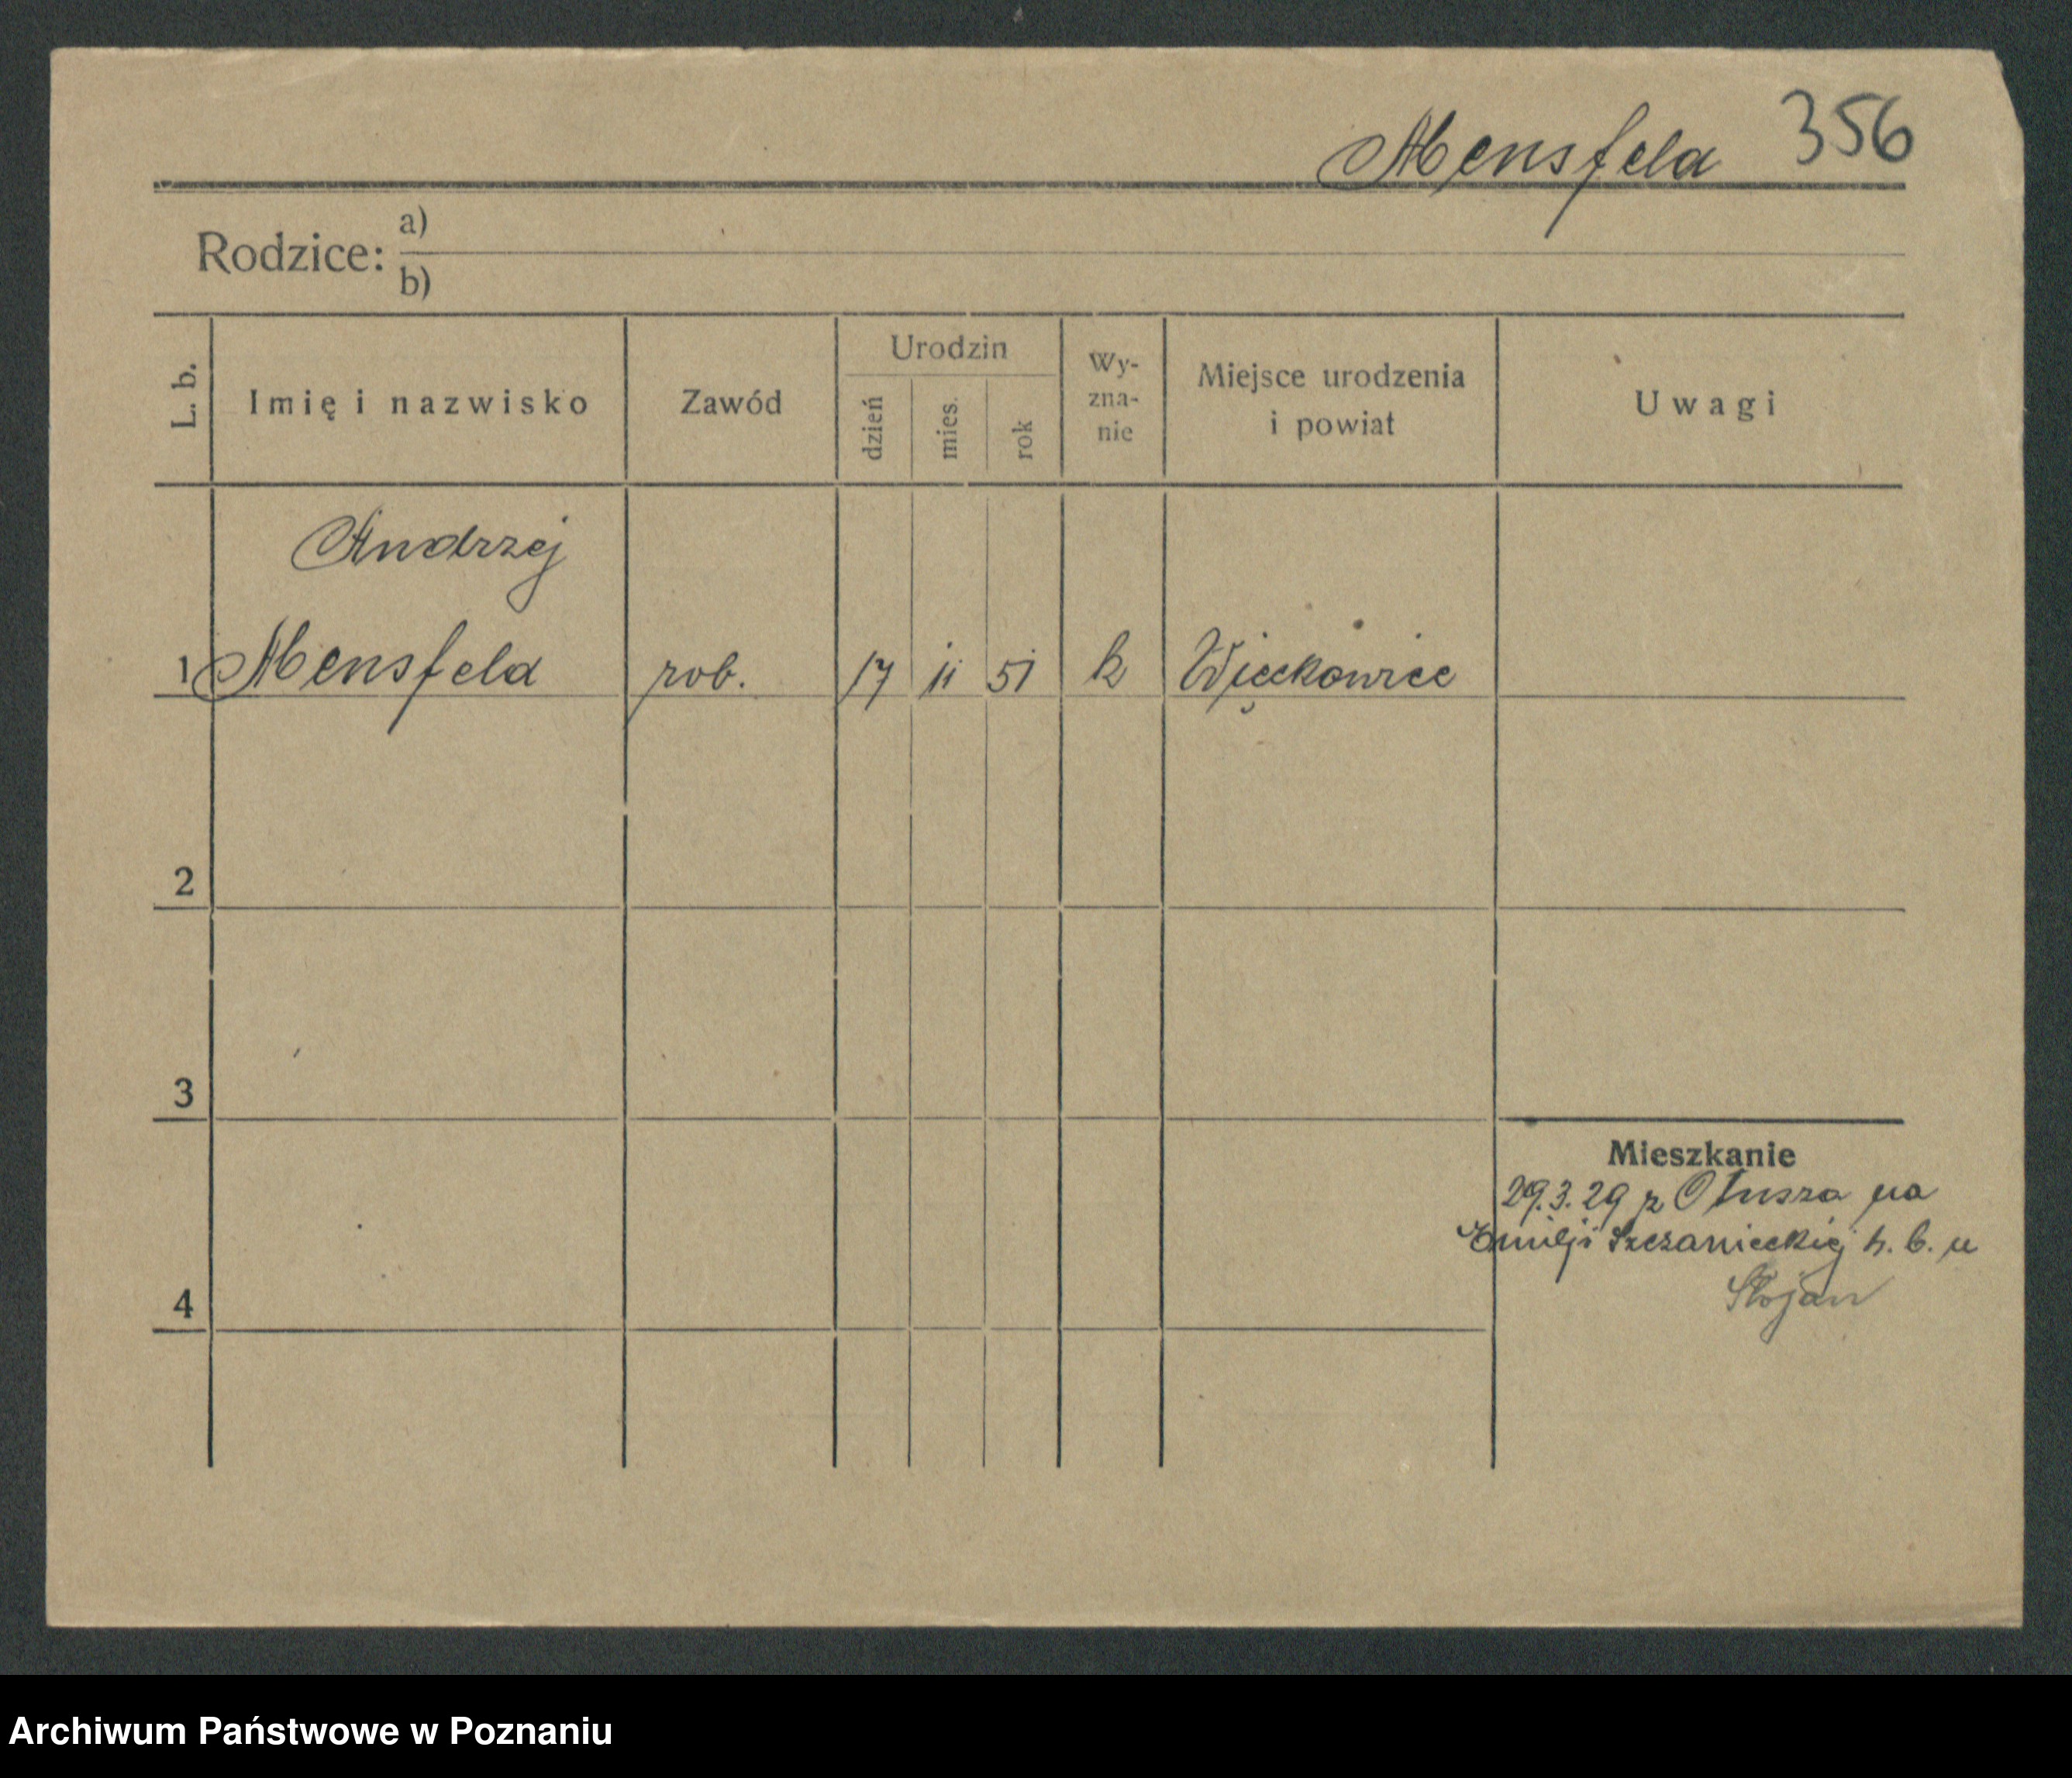 Mensfeld 356
Rodzice: a)
b)
L. b.
Imię i nazwisko
Zawód
Urodzin
dzień
mies.
rok
Wy-
zna-
nie
Miejsce urodzenia
i powiat
Uwagi
Andrzej
1 Mensfeld rob. 17 11 51 k Więckowice
2
3
Mieszkanie
29.3.29 z Otusza na
Emilji Szczanieckiej h. b. u
4
Stojan
Archiwum Państwowe w Poznaniu